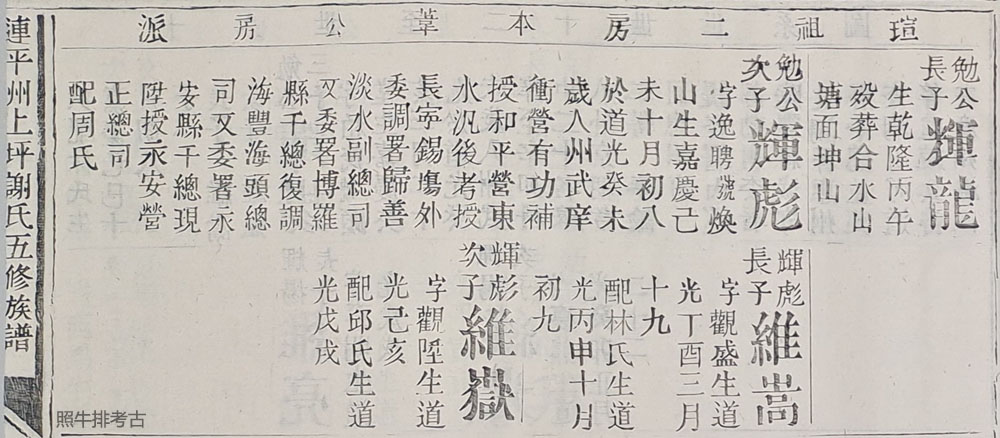 瑄祖二房本葦公房派
勉公
長子
輝龍
生乾隆丙午
歿葬合水山
塘面坤山
勉公
次子
輝彪
字逸聘號煥
山生嘉慶己
未十月初八
於道光癸未
歲入州武庠
衝營有功補
授和平營東
水汎後考授
長寜錫塲外
委調署歸善
淡水副總司
又委署博羅
縣千總復調
海豐海頭總
司又委署永
安縣千總現
陞授永安營
正總司
配周氏
輝彪
長子
維嵩
字觀盛生道
光丁酉三月
十九
配林氏生道
光丙申十月
初九
輝彪
次子
維嶽
字觀陞生道
光己亥
配邱氏生道
光戊戌
連平州上坪謝氏五修族譜
照牛排考古